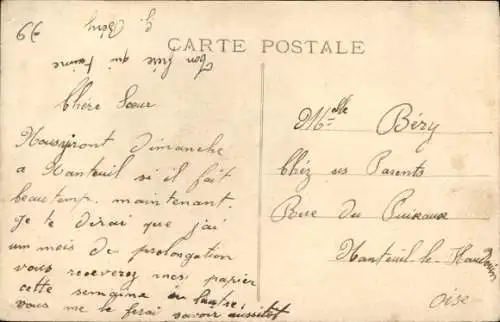 CARTE POSTALE
Chère Soeur
Nous iront dimanche
a Nanteuil si il fait
beau temp. maintenant.
Je te dirai que j'ai
un mois de prolongation
vous receverez mes papier
cette semaine ou l'autre.
vous me le ferai savoir aussitot
ton frère qui t'aime
G. Béry
Mlle Béry
Chéz ses Parents
Rue du Puiseaux
Nanteuil-le-Haudouin
Oise